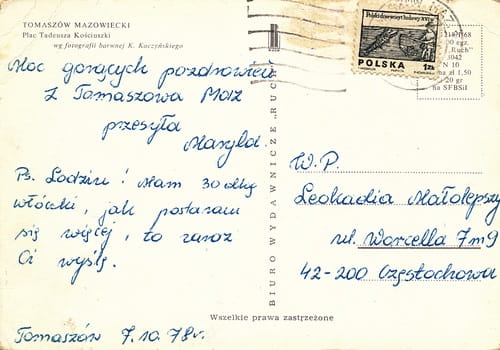 TOMASZÓW MAZOWIECKI
Plac Tadeusza Kościuszki
wg fotografii barwnej K. Kaczyńskiego
Moc gorących pozdrowień
z Tomaszowa Maz
przesyła
Maryla.
Ps. Lodziu! Mam 30 dkg
włóczki, jak postaram
się więcej, to zaraz
Ci wyślę.
Tomaszów 7.10.78r.
BIURO WYDAWNICZE „RUCH”
POLSKA
1zł
egz.
„Ruch”
N 10
na zł 1,50
20 gr
na SFBSiI
W.P.
Leokadia Małolepszy
ul. Worcella 7 m 9
42-200 Częstochowa
Wszelkie prawa zastrzeżone